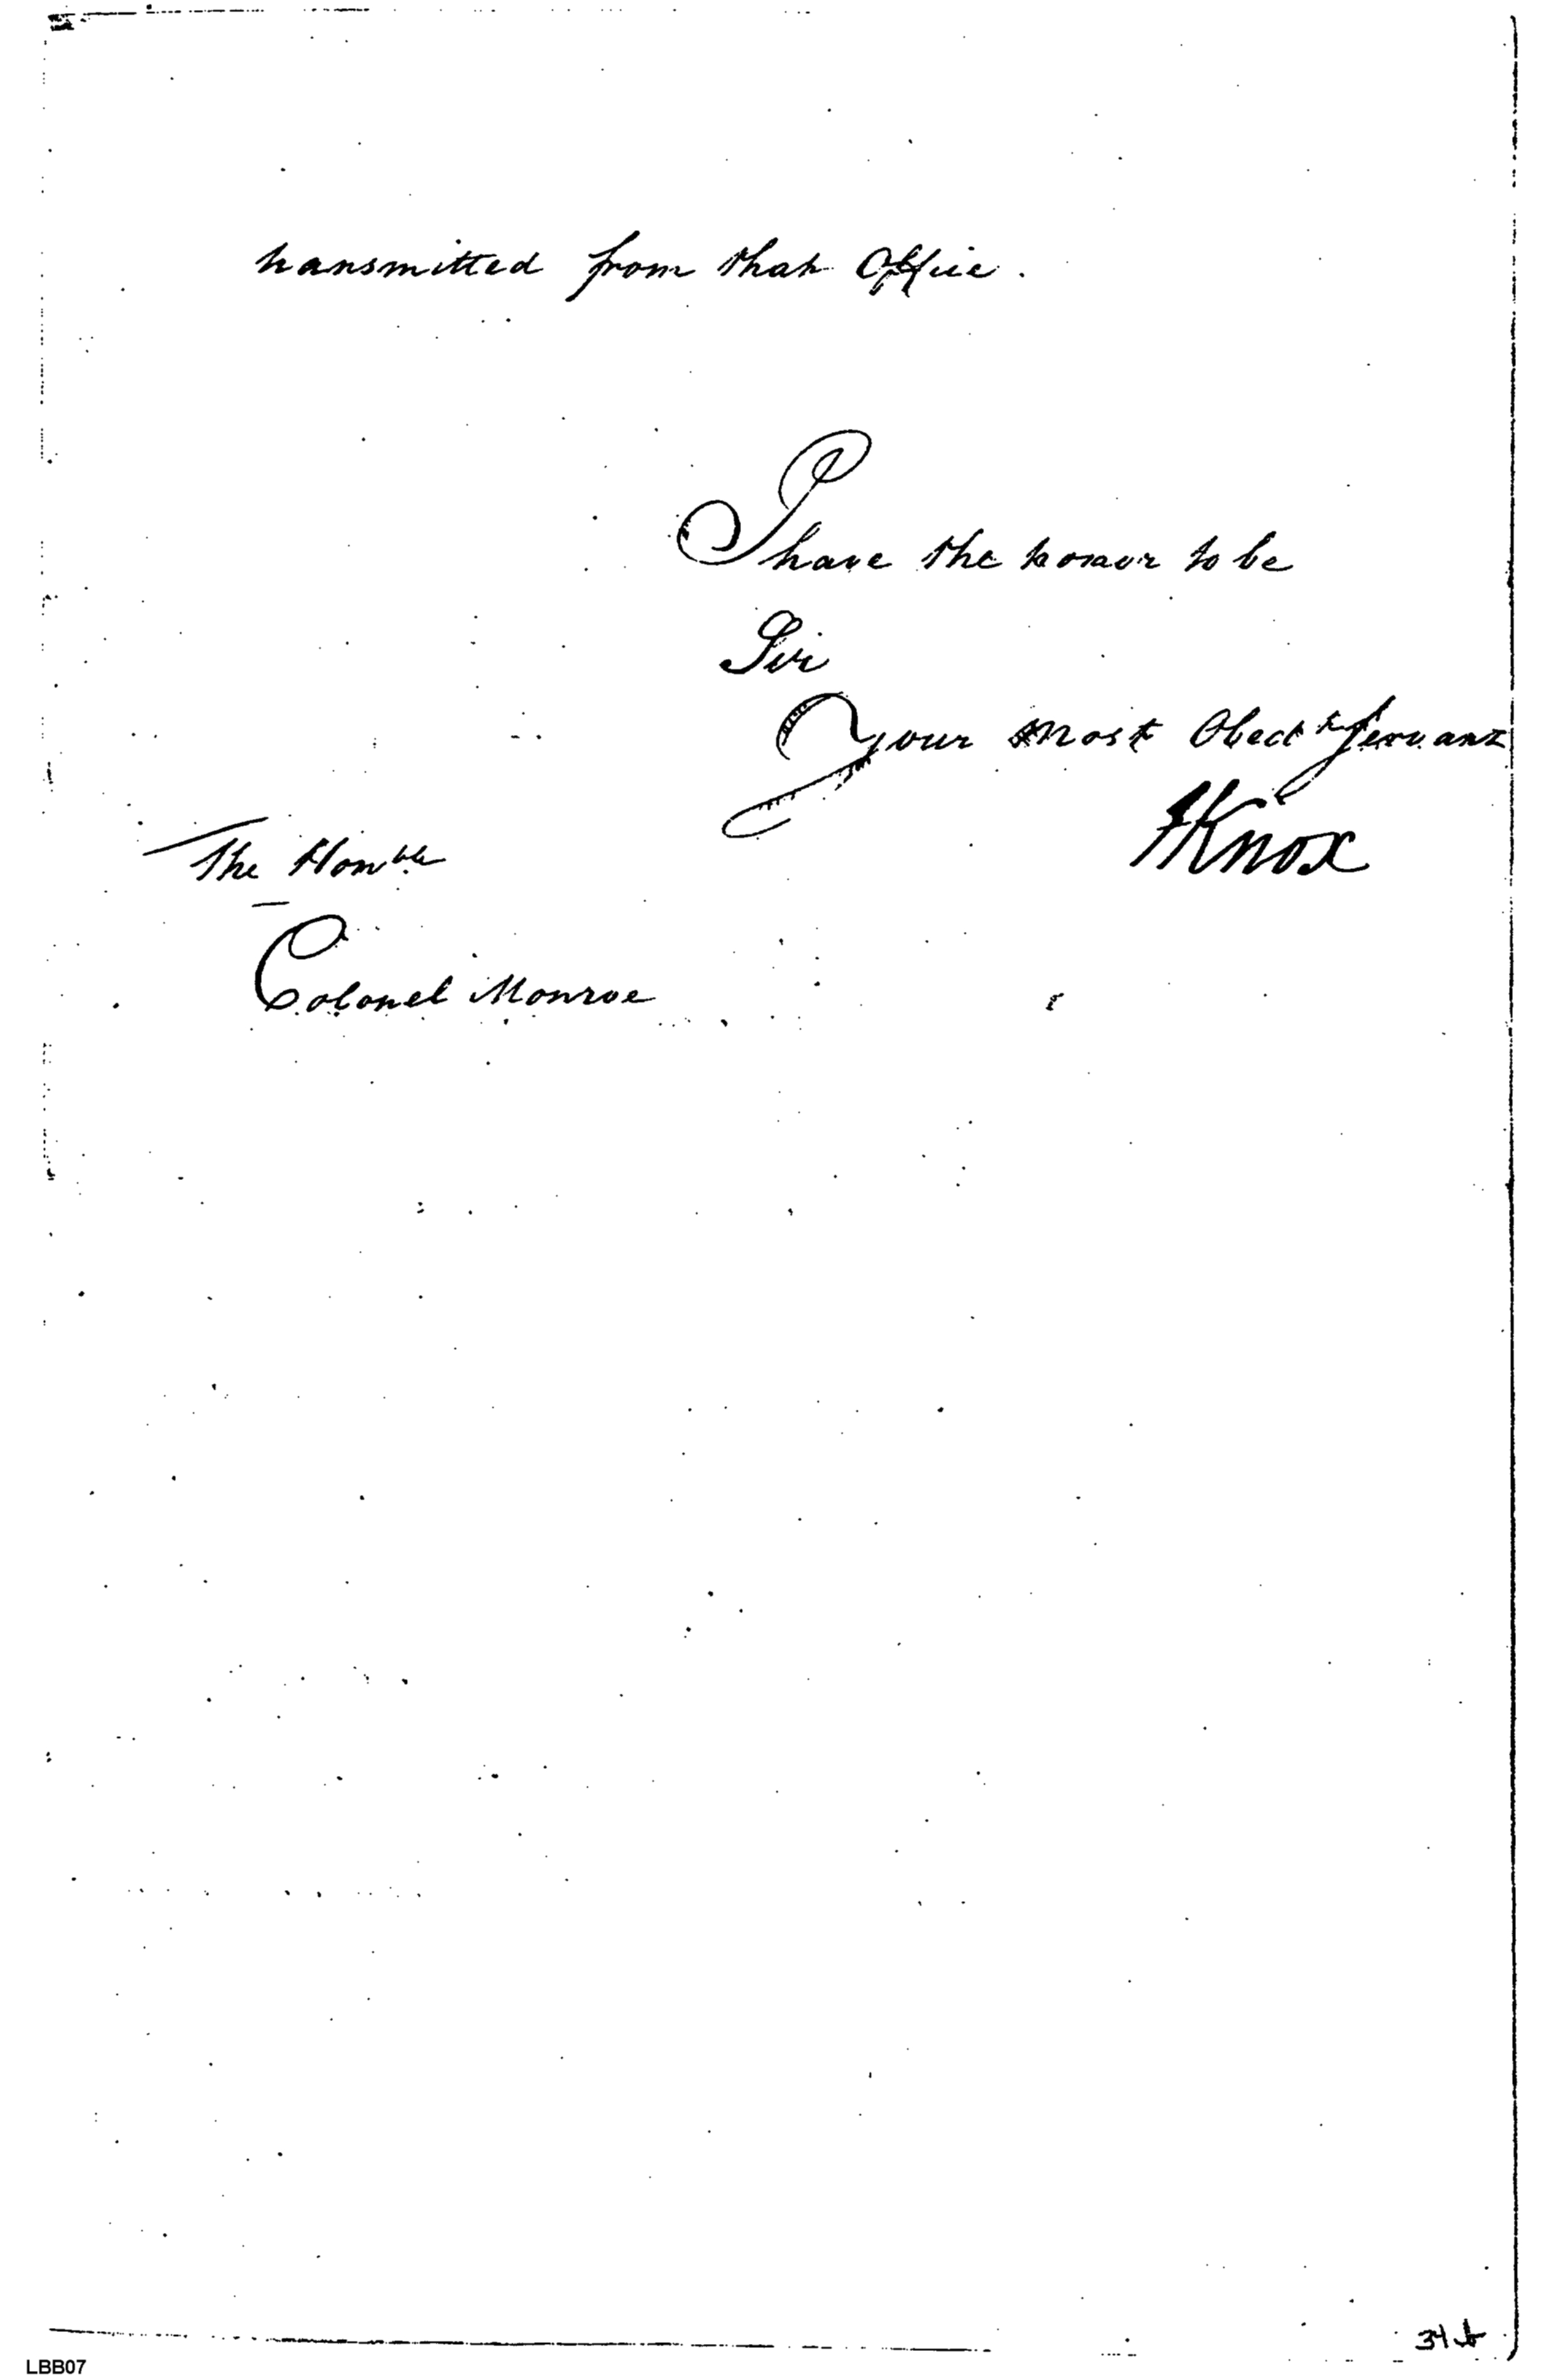 transmitted from that Office.
I have the honor to be
Sir
Your most Obedt Servant
HKnox
The Honble
Colonel Monroe
34
LBB07